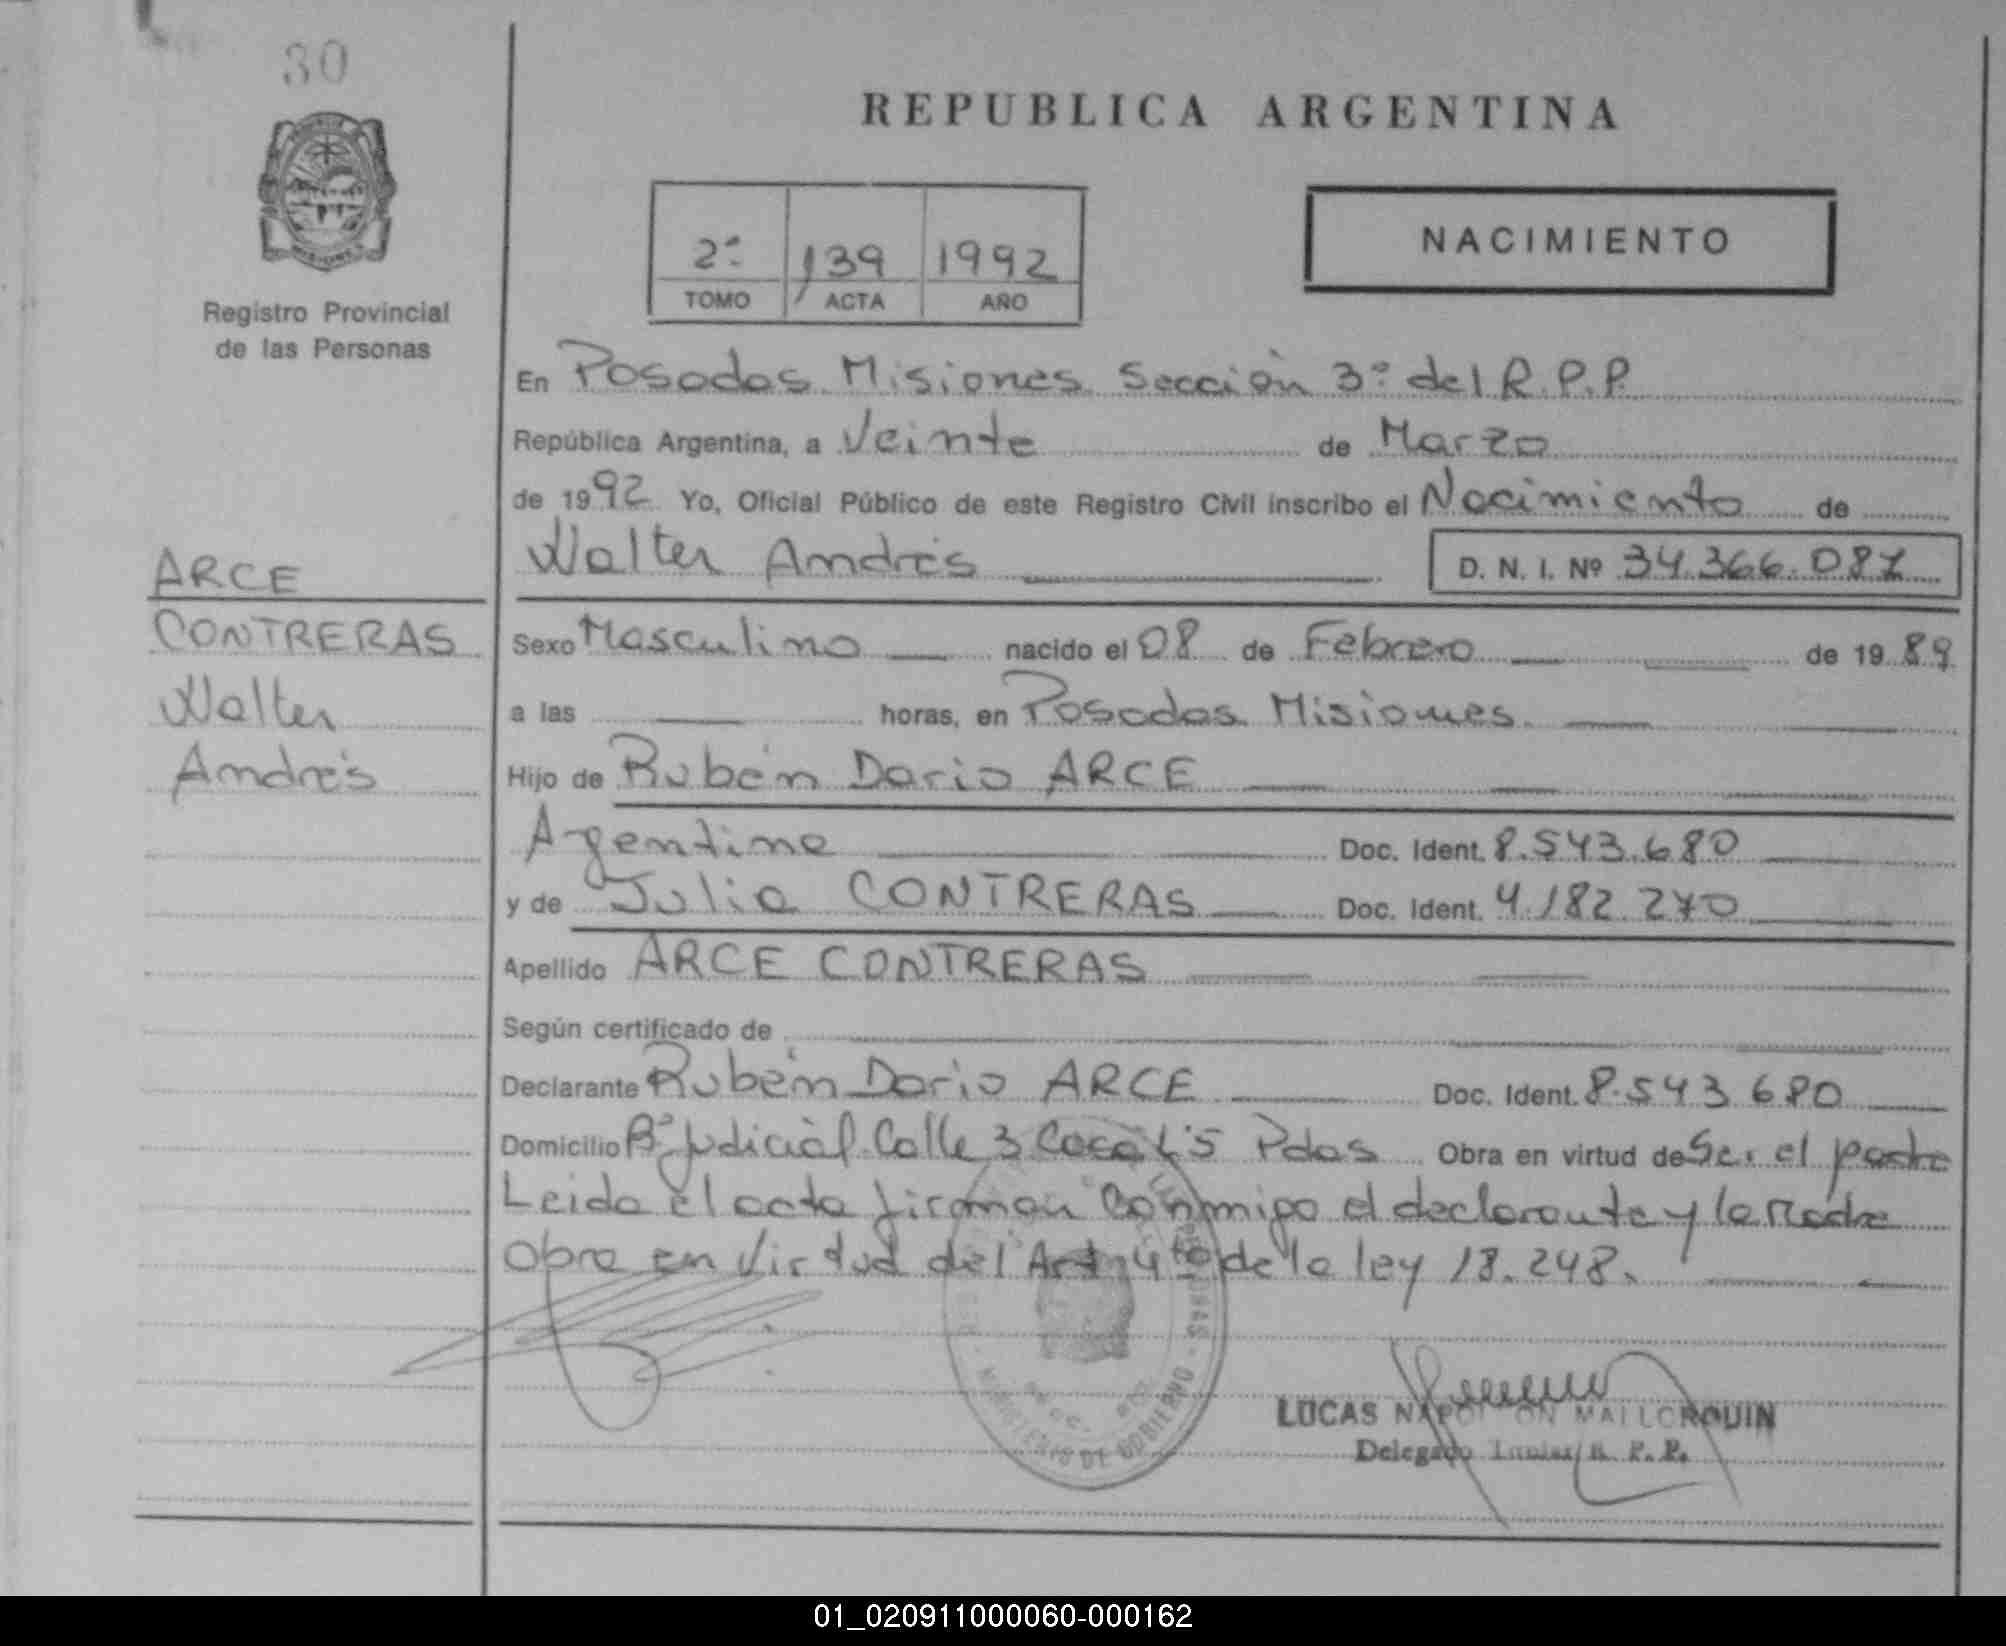 30
REPUBLICA ARGENTINA
NACIMIENTO
2º 139 1992
TOMO ACTA AÑO
Registro Provincial
de las Personas
En Posadas Misiones Sección 3º del R.P.P.
República Argentina, a Veinte de Marzo
de 1992 Yo, Oficial Público de este Registro Civil inscribo el Nacimiento de
Walter Andrés D. N. I. Nº 34.366.087
ARCE
CONTRERAS
Walter
Andrés
Sexo Masculino nacido el 08 de Febrero de 1989
a las horas, en Posadas Misiones.
Hijo de Rubén Dario ARCE
Argentino Doc. Ident. 8.543.680
y de Julia CONTRERAS Doc. Ident. 4.182.270
Apellido ARCE CONTRERAS
Según certificado de
Declarante Rubén Dario ARCE Doc. Ident. 8.543.680
Domicilio Bº Judicial Calle 3 Casa Pdas Obra en virtud de Ser el padre
Leida el acta firman Conmigo el declarante y la Madre
Obra en Virtud del Art 4to de la ley 18.248.
MINISTERIO DE GOBIERNO
LUCAS NAPOLEON MALLORQUIN
Delegado R. P. P.
01_020911000060-000162